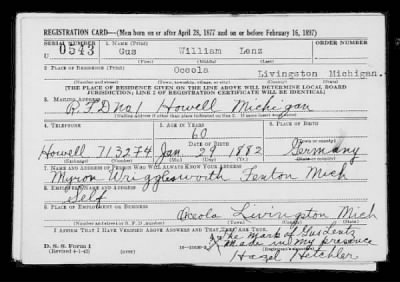 REGISTRATION CARD—(Men born on or after April 28, 1877 and on or before February 16, 1897)
SERIAL NUMBER 1. NAME (Print)
U 0543 Gus William Lenz
(First) (Middle) (Last)
2. PLACE OF RESIDENCE (Print)
Oceola Livingston Michigan.
(Number and street) (Town, township, village, or city) (County) (State)
[THE PLACE OF RESIDENCE GIVEN ON THE LINE ABOVE WILL DETERMINE LOCAL BOARD
JURISDICTION; LINE 2 OF REGISTRATION CERTIFICATE WILL BE IDENTICAL]
3. MAILING ADDRESS
R.F.D. No 1 Howell Michigan
[Mailing address if other than place indicated on line 2. If same insert word same]
4. TELEPHONE 5. AGE IN YEARS 6. PLACE OF BIRTH
60
DATE OF BIRTH (Town or county)
Howell 713274 Jan. 29 1882 Germany
(Exchange) (Number) (Mo.) (Day) (Yr.) (State or country)
7. NAME AND ADDRESS OF PERSON WHO WILL ALWAYS KNOW YOUR ADDRESS
Myron Wrigglesworth Fenton Mich
8. EMPLOYER'S NAME AND ADDRESS
Self
9. PLACE OF EMPLOYMENT OR BUSINESS
Oceola Livingston Mich
(Number and street or R. F. D. number) (Town) (County) (State)
I AFFIRM THAT I HAVE VERIFIED ABOVE ANSWERS AND THAT THEY ARE TRUE.
D. S. S. Form 1
(Revised 4-1-42) (over)
X The mark of Gus Lentz
Made in my presence
Hazel Hetchler